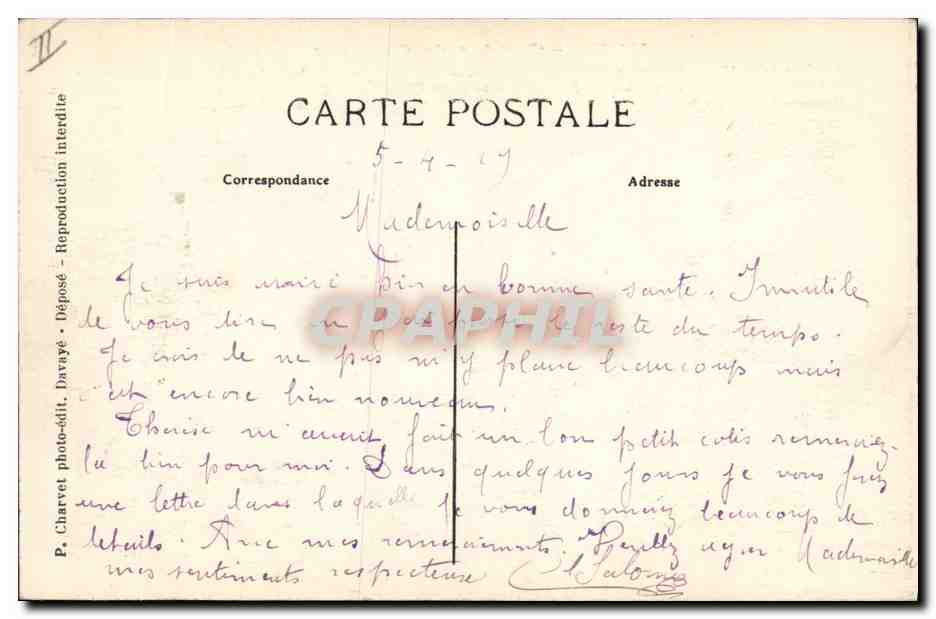 II
CARTE POSTALE
5 - 4 - 19
Correspondance
Adresse
Mademoiselle
Je suis bien en bonne sante. Innutile
de vous dire le reste du temps.
Je crois de ne pas m'y plaire beaucoup mais
c'est encore bien nouveau.
Therese m'avait fait un bon petit colis remerciez-
la bien pour moi. Dans quelques jours je vous
une lettre dans laquelle je vous donnerez beaucoup de
details. Avec mes remerciements. Mademoiselle
mes sentiments respecteuse
P. Charvet photo-édit. Davayé - Déposé - Reproduction interdite
CPAPHIL